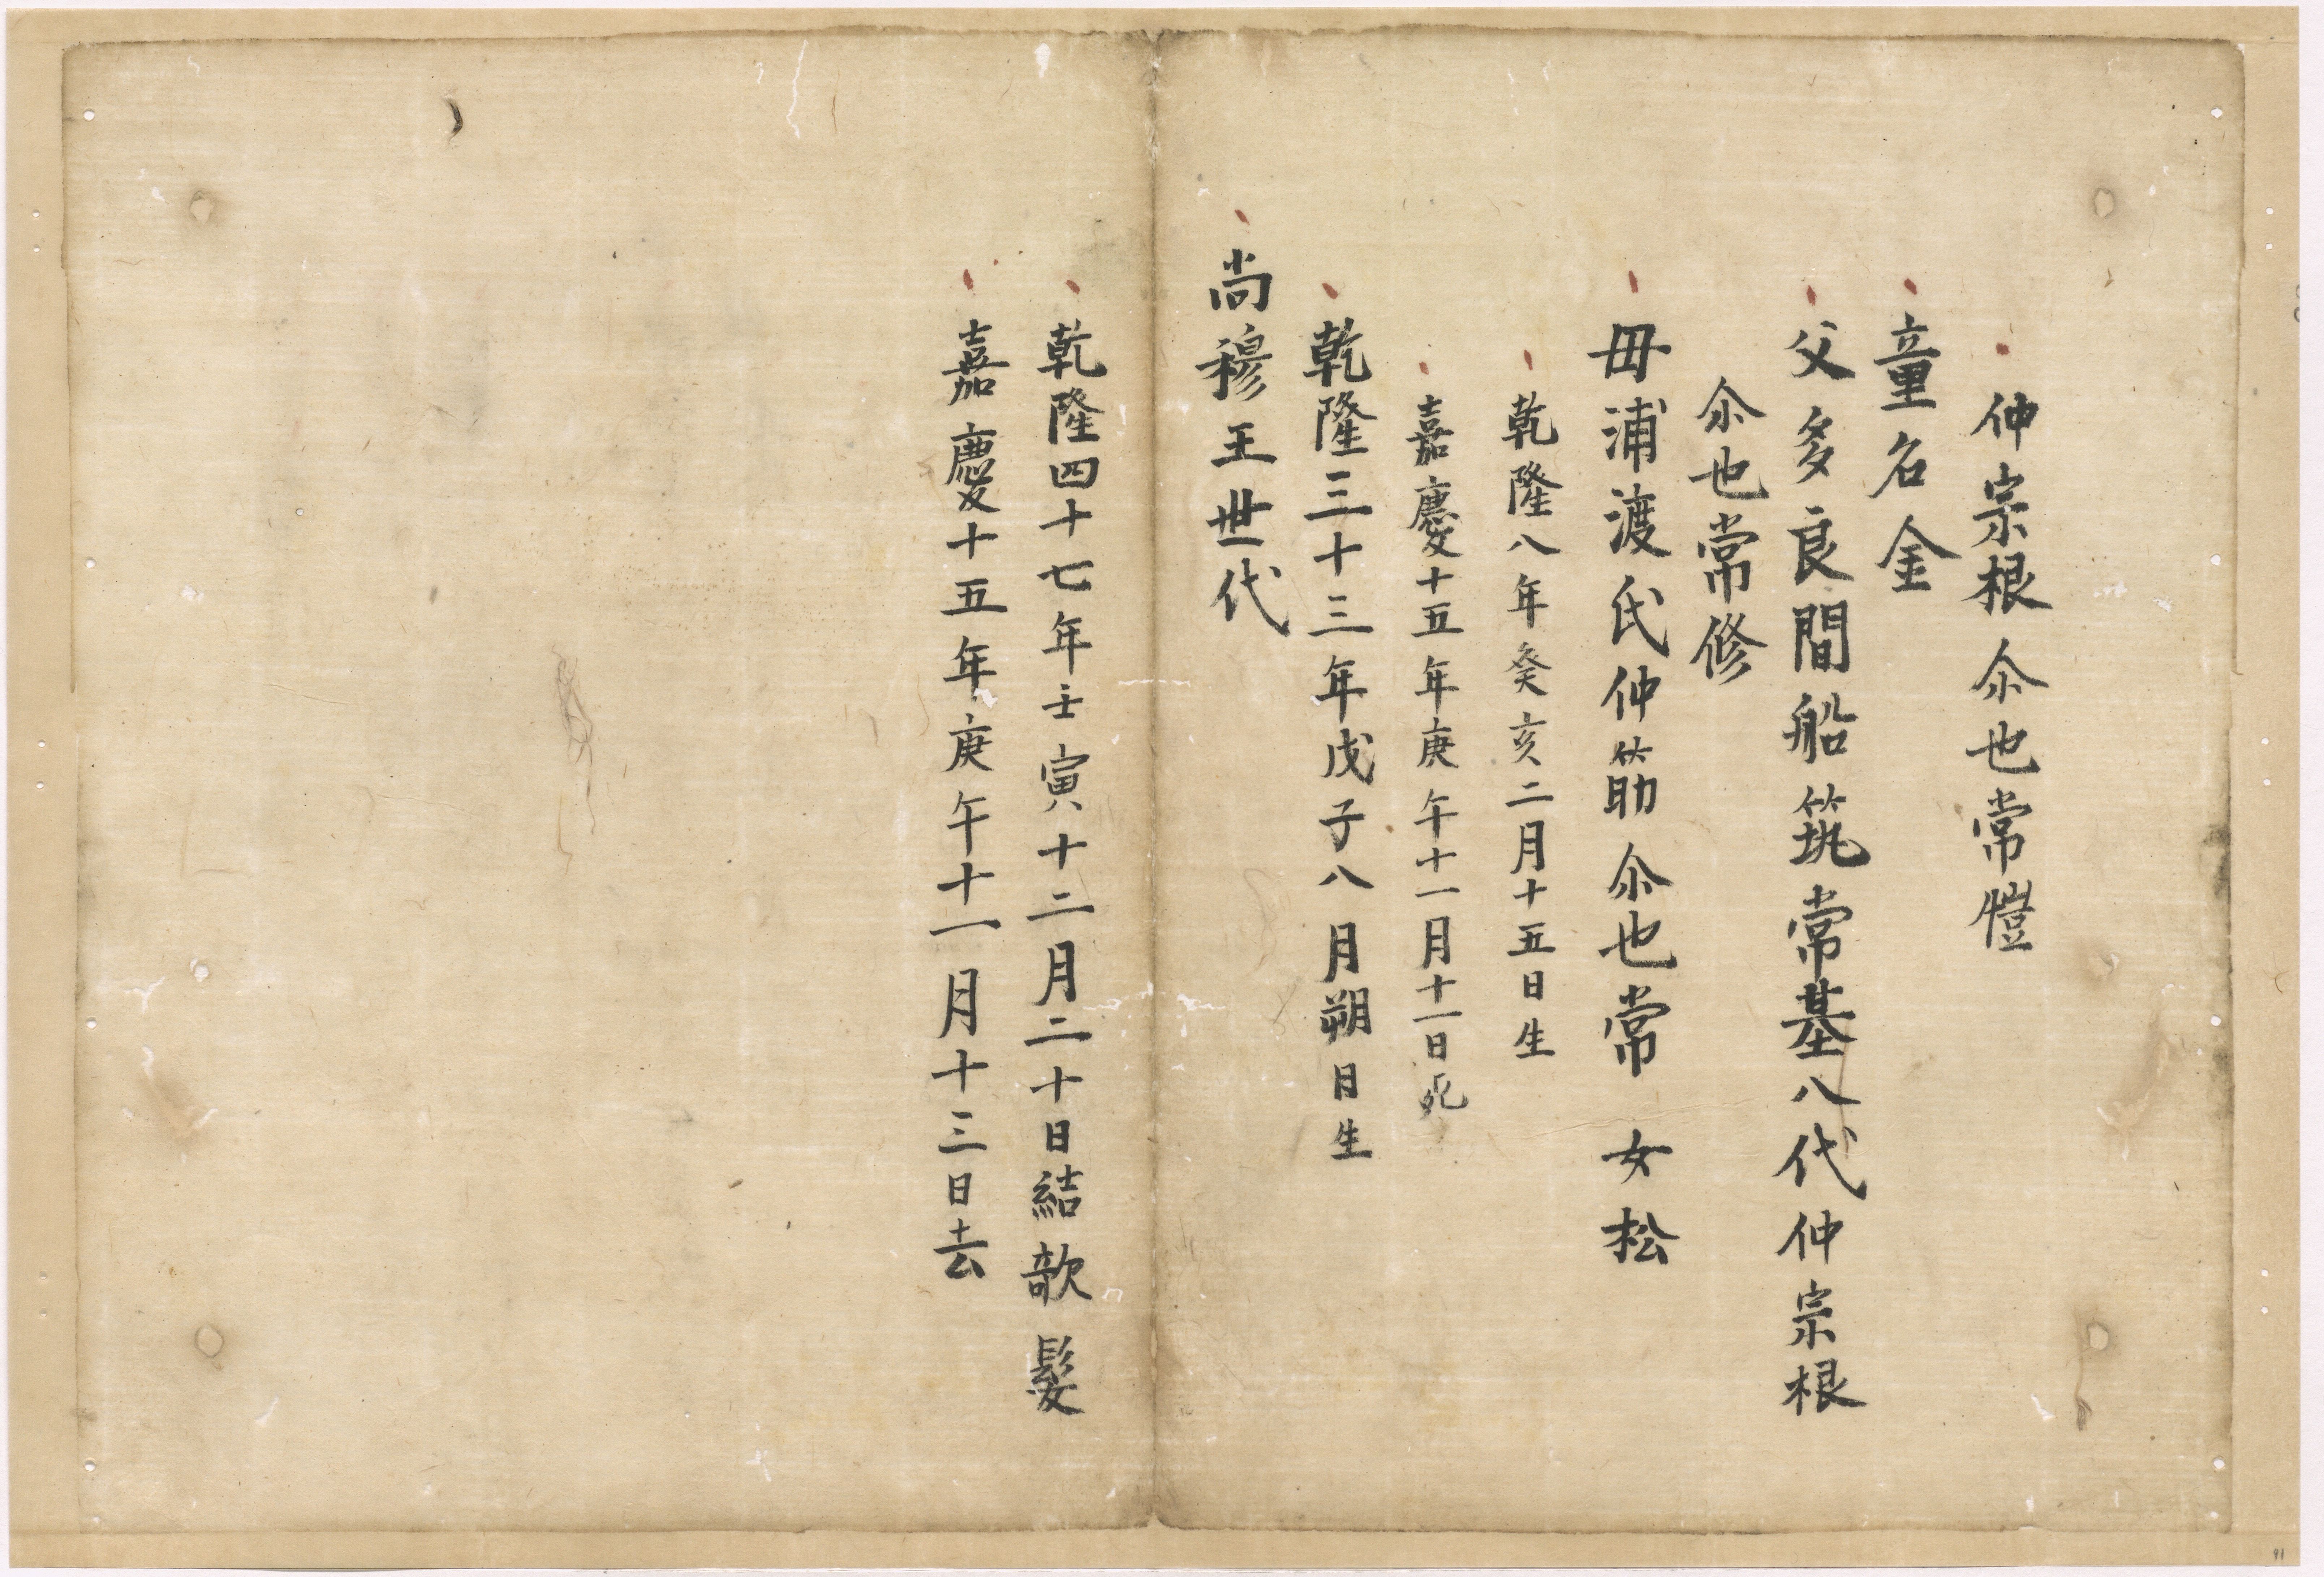 仲宗根尒也常愷
童名金
父多良間船筑常基八代仲宗根
尒也常修
母浦渡氏仲筋尒也常女松
乾隆八年癸亥二月十五日生
嘉慶十五年庚午十一月十一日死
乾隆三十三年戊子八月朔日生
尚穆王世代
乾隆四十七年壬寅十二月二十日結欹髮
嘉慶十五年庚午十一月十三日去
91